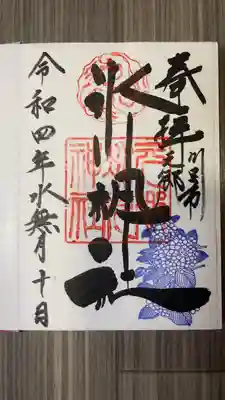 奉拝
川口市
元郷
氷川神社
令和四年水無月十日